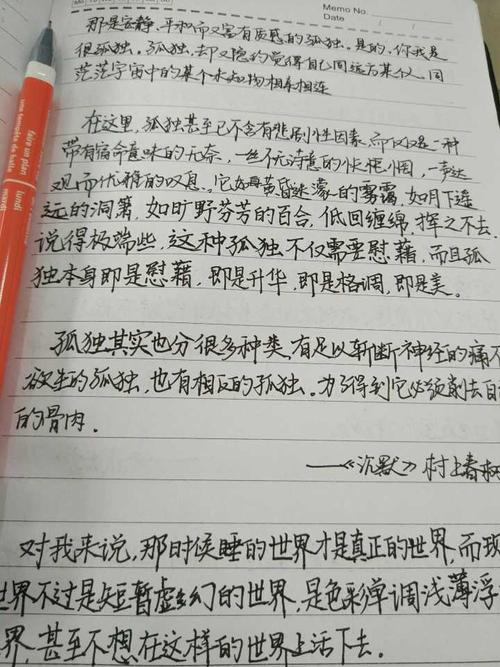 Mo Tu We Th Fr Sa Su
Memo No.
Date / /
那是安静、平和而又富有质感的孤独。真的,你我是
很孤独。孤独,却又隐约觉得自己同远方某仪、同
茫茫宇宙中的某个未知物相牵相连
在这里,孤独甚至已不含有悲剧性因素,而仅仅是一种
带有宿命意味的无奈,一丝不无诗意的怅惘,一声达
观而优雅的叹息。它如黄昏迷濛的雾霭,如月下遥
远的洞箫,如旷野芬芳的百合,低回缠绵,挥之不去。
说得极端些,这种孤独不仅需要慰藉,而且孤
独本身即是慰藉,即是升华,即是格调,即是美。
孤独其实也分很多种类,有足以斩断神经的痛不
欲生的孤独,也有相反的孤独。为了得到它必须削去自
的骨肉。
——《沉默》村上春树
对我来说,那时候睡的世界才是真正的世界,而现
世界不过是短暂虚幻的世界,是色彩单调浅薄浮
界,甚至不想在这样的世界上活下去。
faire un plan
une tempête de
lundi
mardi